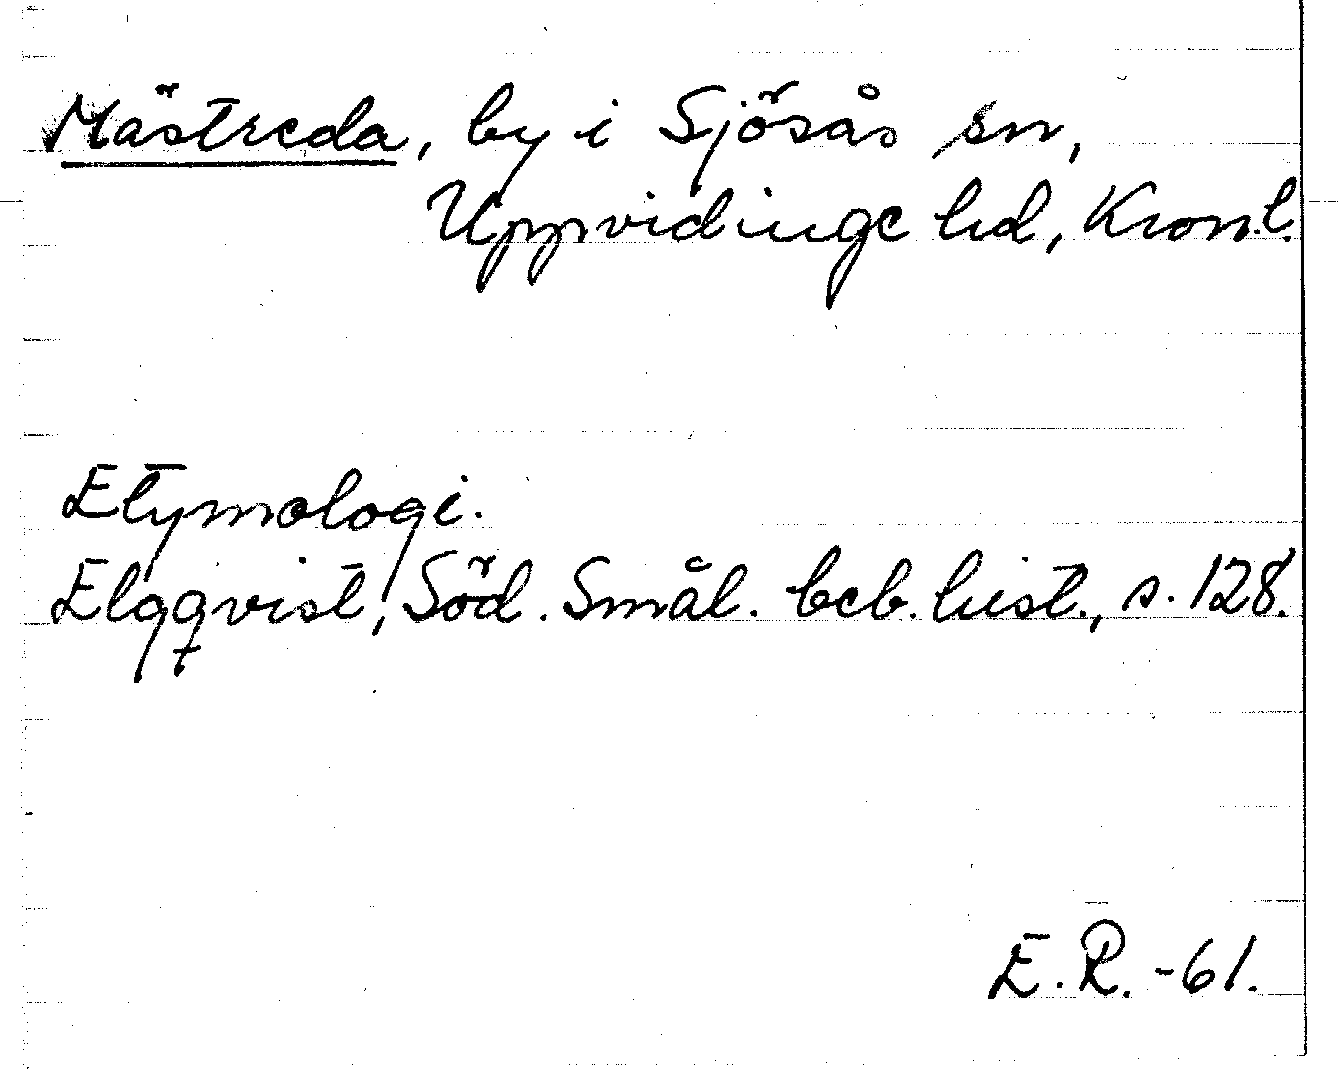 Mästreda, by i Sjösås sn,
Uppvidinge hd, Kron.l.
Etymologi.
Elgqvist, Söd. Smål. beb. hist., s. 128.
E.R. -61.